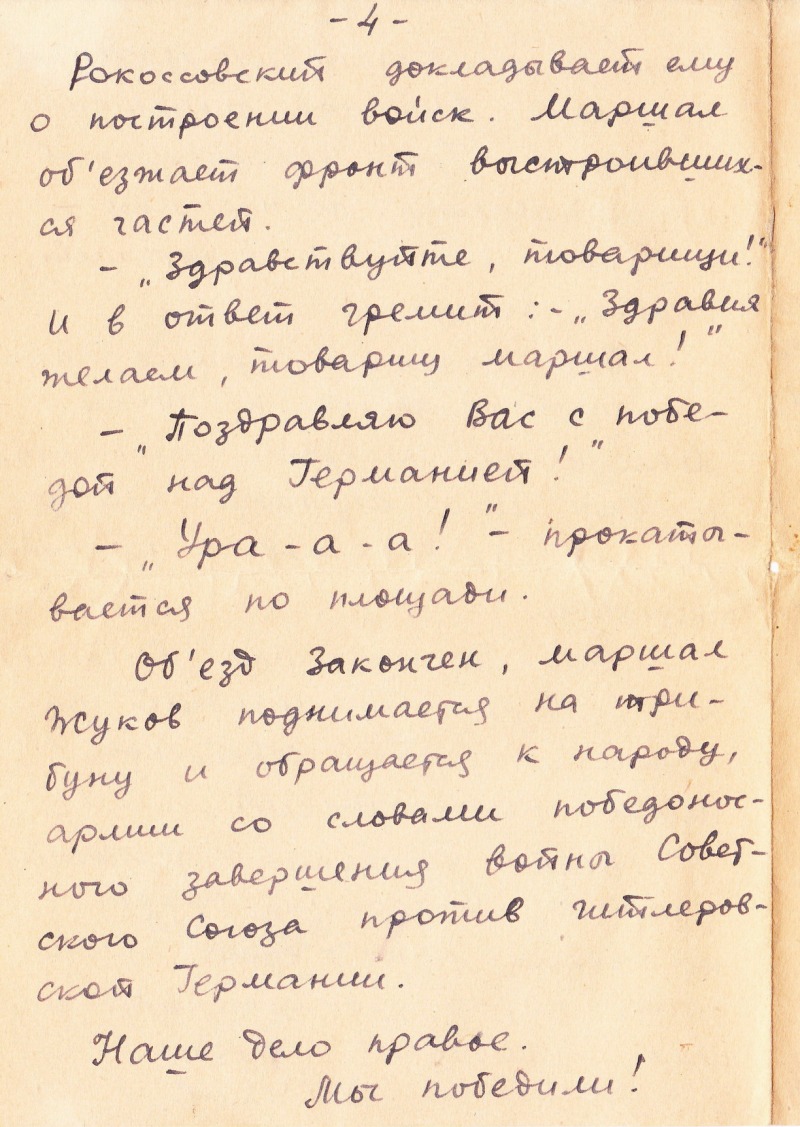 - 4 -
Рокоссовский докладывает ему
о построении войск. Маршал
об'езжает фронт выстроивших-
ся частей.
- „Здравствуйте, товарищи!"
И в ответ гремит: - „Здравия
желаем, товарищ маршал!"
- „Поздравляю Вас с побе-
дой над Германией!"
- „Ура - а - а!" - прокаты-
вается по площади.
Об'езд закончен, маршал
Жуков поднимается на три-
буну и обращается к народу,
армии со словами победонос-
ного завершения войны Совет-
ского Союза против гитлеров-
ской Германии.
Наше дело правое.
Мы победили!